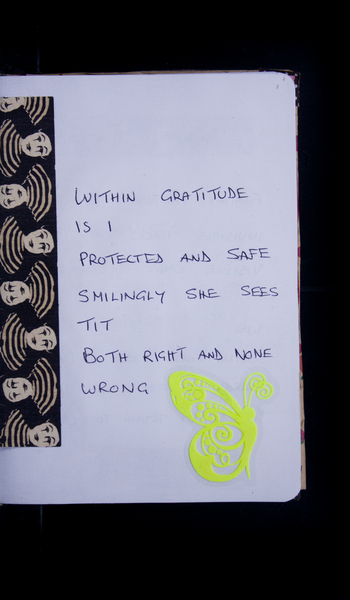 WITHIN GRATITUDE
IS I
PROTECTED AND SAFE
SMILINGLY SHE SEES
TIT
BOTH RIGHT AND NONE
WRONG